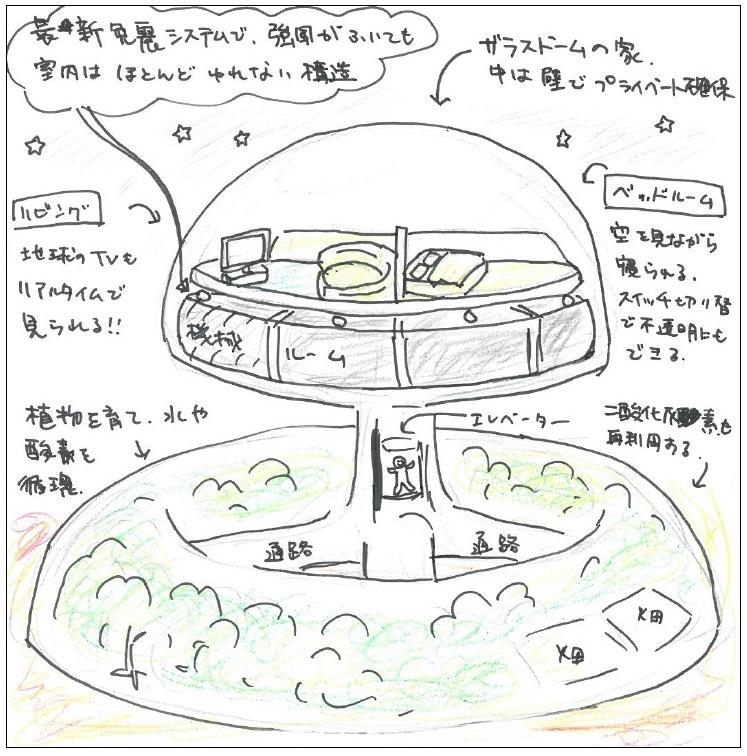 最新免震システムで、強風がふいても
室内はほとんどゆれない構造
ガラスドームの家.
中は壁でプライベート確保
リビング
地球のTVも
リアルタイムで
見られる!!
ベッドルーム
空を見ながら
寝られる.
スイッチ切り替
で不透明にも
できる.
機械
ルーム
植物を育て、水や
酸素を
循環.
エレベーター
二酸化炭素も
再利用する.
通路
通路
畑
畑